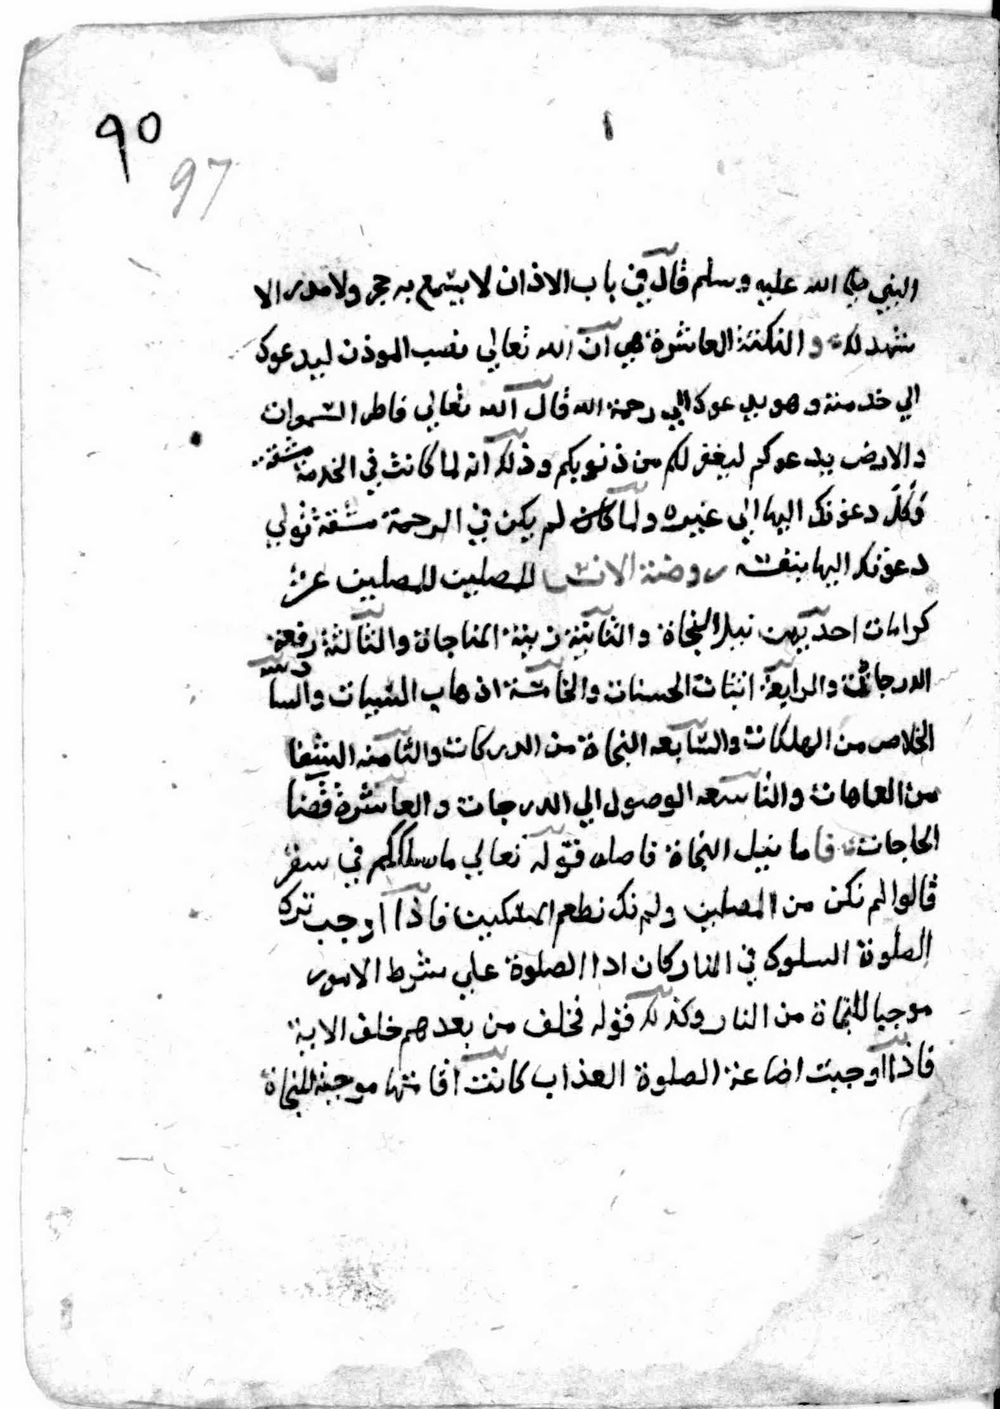 ١
٩٥
97
النبي صلي الله عليه وسلم قال في باب الاذان لا يسمع به حجر ولا مدر الا
شهد له والنكتة العاشرة هي ان الله تعالي نصب الموذن ليدعوك
الي خدمته وهو يدعوك الي رحمة الله قال الله تعالي فاطر السموات
والارض يدعوكم ليغفر لكم من ذنوبكم وذلك انه لما كانت في الخدمة مشقة
وكل دعوتك اليها الي غيره ولما كان لم يكن في الرحمة مشقة تولي
دعوتك اليها بنفسه روضة الانس للمصلين للمصلين عشر
كرامات احديهن نيل النجاة والثانية زينة المناجاة والثالثة رفعة
الدرجات والرابعة اثبات الحسنات والخامسة اذهاب السيات والسادسة
الخلاص من الهلكات والسابعه النجاة من الدركات والثامنه الشفا
من العاهات والتاسعه الوصول الي الدرجات والعاشرة قضا
الحاجات فاما نيل النجاة فاصله قوله تعالي ما سلككم في سقر
قالوا لم نكن من المصلين ولم نك نطعم المسكين فاذا اوجب ترك
الصلوة السلوك في النار كان ادا الصلوة علي شرط الامور
موجبا للنجاة من النار وكذلك قوله فخلف من بعدهم خلف الاية
فاذا اوجبت اضاعة الصلوة العذاب كانت اقامتها موجبة للنجاة